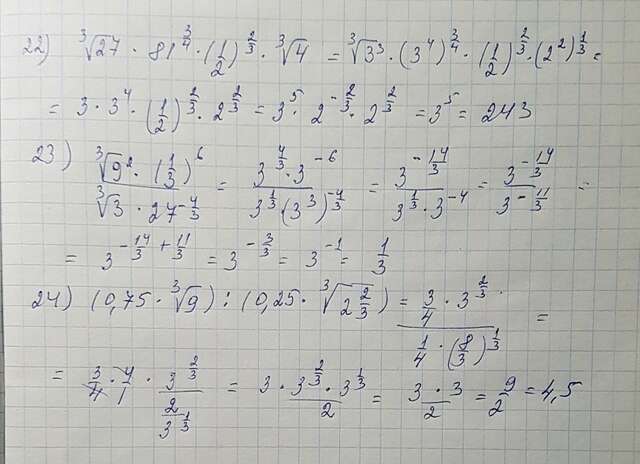 22) ∛27 · 81^(3/4) · (1/2)^(2/3) · ∛4 = ∛3³ · (3⁴)^(3/4) · (1/2)^(2/3) · (2²)^(1/3) =
= 3 · 3⁴ · (1/2)^(2/3) · 2^(2/3) = 3⁵ · 2^(-2/3) · 2^(2/3) = 3⁵ = 243
23) (∛9² · (1/3)⁶)/(∛3 · 27^(-4/3)) = (3^(4/3) · 3^(-6))/(3^(1/3) · (3³)^(-4/3)) = (3^(-14/3))/(3^(1/3) · 3^(-4)) = (3^(-14/3))/(3^(-11/3)) =
= 3^(-14/3 + 11/3) = 3^(-3/3) = 3^(-1) = 1/3
24) (0,75 · ∛9) : (0,25 · ∛(2 2/3)) = (3/4 · 3^(2/3))/(1/4 · (8/3)^(1/3)) =
= 3/4 · 4/1 · (3^(2/3))/(2/3^(1/3)) = (3 · 3^(2/3) · 3^(1/3))/2 = (3 · 3)/2 = 9/2 = 4,5